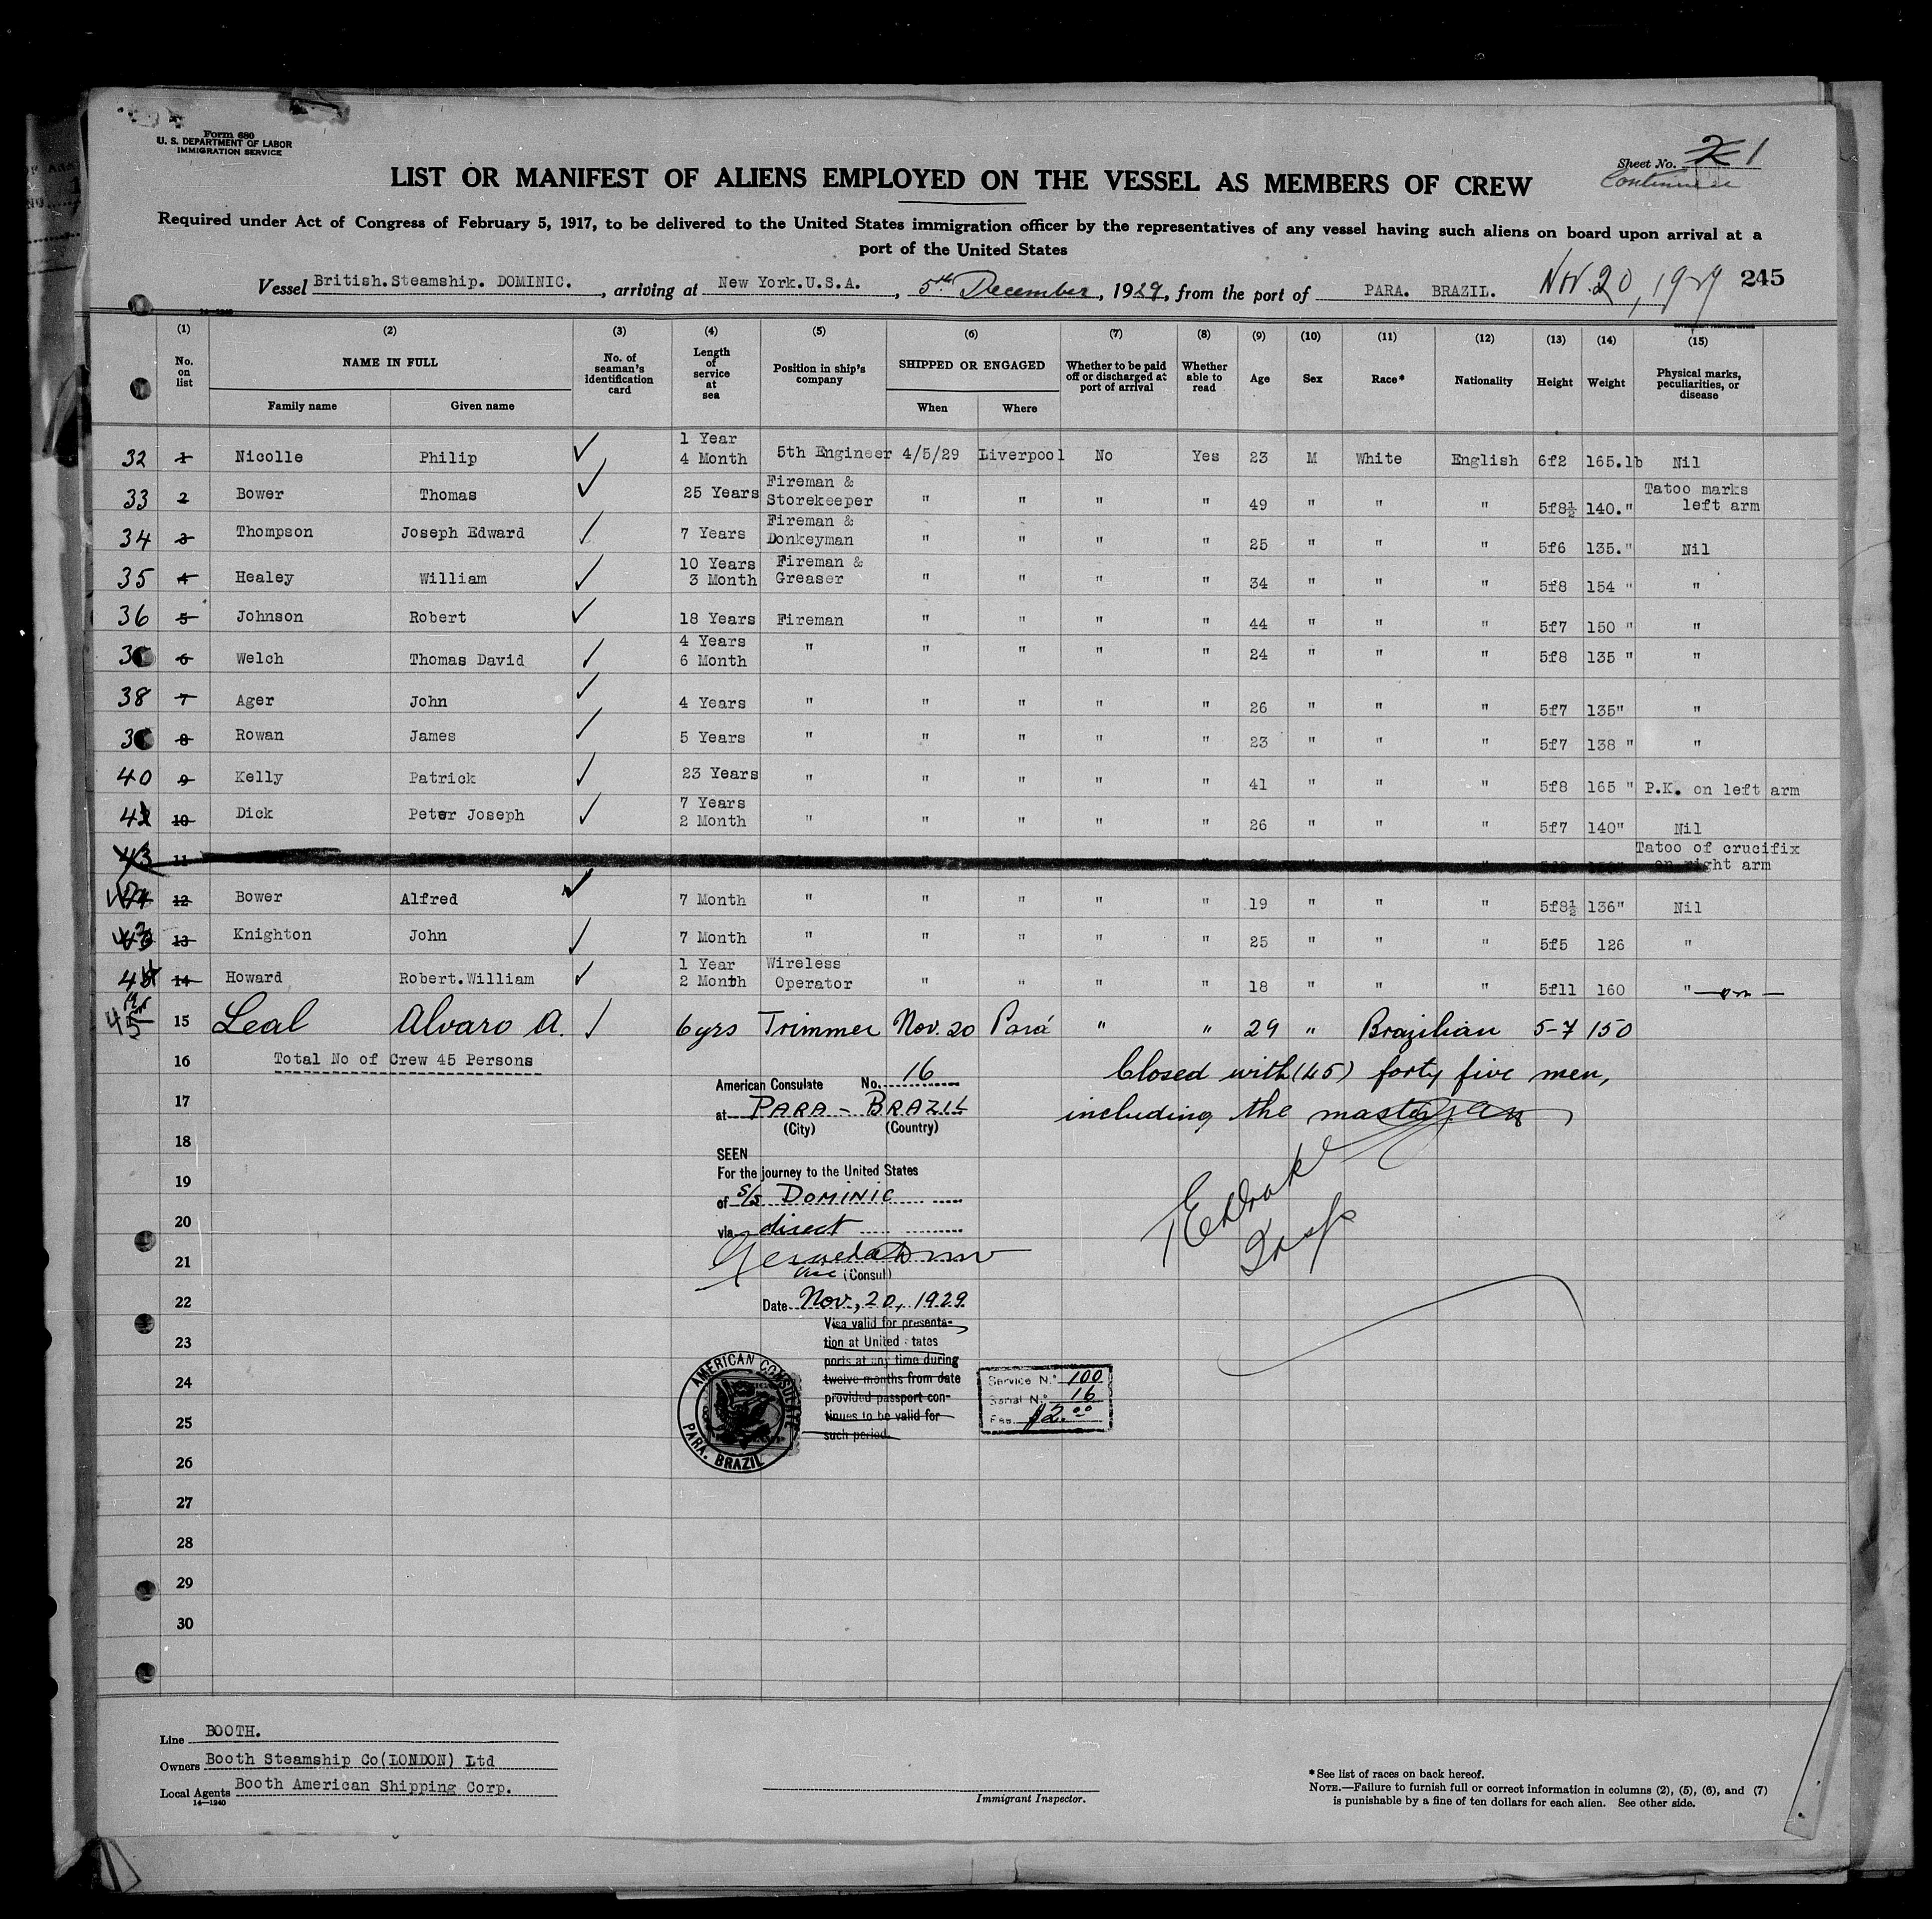 Form 680
U. S. DEPARTMENT OF LABOR
IMMIGRATION SERVICE
Sheet No. 2 1
LIST OR MANIFEST OF ALIENS EMPLOYED ON THE VESSEL AS MEMBERS OF CREW
Required under Act of Congress of February 5, 1917, to be delivered to the United States immigration officer by the representatives of any vessel having such aliens on board upon arrival at a
port of the United States
Vessel British.Steamship. DOMINIC. , arriving at New York.U.S.A. , 5th December, 1929, from the port of PARA. BRAZIL. Nov. 20, 1929 245
(1) (2) (3) (4) (5) (6) (7) (8) (9) (10) (11) (12) (13) (14) (15)
No. on list NAME IN FULL No. of seaman's identification card Length of service at sea Position in ship's company SHIPPED OR ENGAGED Whether to be paid off or discharged at port of arrival Whether able to read Age Sex Race* Nationality Height Weight Physical marks, peculiarities, or disease
Family name Given name When Where
32 1 Nicolle Philip ✓ 1 Year 4 Month 5th Engineer 4/5/29 Liverpool No Yes 23 M White English 6f2 165.lb Nil
33 2 Bower Thomas ✓ 25 Years Fireman & Storekeeper " " " " 49 " " " 5f8½ 140." Tatoo marks left arm
34 3 Thompson Joseph Edward ✓ 7 Years Fireman & Donkeyman " " " " 25 " " " 5f6 135." Nil
35 4 Healey William ✓ 10 Years 3 Month Fireman & Greaser " " " " 34 " " " 5f8 154 " "
36 5 Johnson Robert ✓ 18 Years Fireman " " " " 44 " " " 5f7 150 " "
6 Welch Thomas David ✓ 4 Years 6 Month " " " " " 24 " " " 5f8 135 " "
38 7 Ager John ✓ 4 Years " " " " " 26 " " " 5f7 135" "
8 Rowan James ✓ 5 Years " " " " " 23 " " " 5f7 138 " "
40 9 Kelly Patrick ✓ 23 Years " " " " " 41 " " " 5f8 165 " P.K. on left arm
10 Dick Peter Joseph ✓ 7 Years 2 Month " " " " " 26 " " " 5f7 140" Nil
43 11 Tatoo of crucifix on right arm
12 Bower Alfred ✓ 7 Month " " " " " 19 " " " 5f8½ 136" Nil
13 Knighton John ✓ 7 Month " " " " " 25 " " " 5f5 126 "
14 Howard Robert.William ✓ 1 Year 2 Month Wireless Operator " " " " 18 " " " 5f11 160 "
15 Leal Alvaro A. ✓ 6 yrs Trimmer Nov. 20 Pará " " 29 " Brazilian 5-7 150
16 Total No of Crew 45 Persons
Closed with (45) forty five men,
including the master
17
18
19
20
21
22
23
24
25
26
27
28
29
30
American Consulate No. 16
at PARA - BRAZIL
(City) (Country)
SEEN
For the journey to the United States
of S/S DOMINIC
via direct
Vice (Consul)
Date Nov, 20, 1929
Visa valid for presenta-
tion at United tates
ports at any time during
twelve months from date
provided passport con-
tinues to be valid for
such period.
AMERICAN CONSULATE
PARA. BRAZIL
Service No. 100
Serial No. 16
Fee $2.00
Line BOOTH.
Owners Booth Steamship Co(LONDON) Ltd
Local Agents Booth American Shipping Corp.
14—1240
Immigrant Inspector.
*See list of races on back hereof.
NOTE.—Failure to furnish full or correct information in columns (2), (5), (6), and (7)
is punishable by a fine of ten dollars for each alien. See other side.